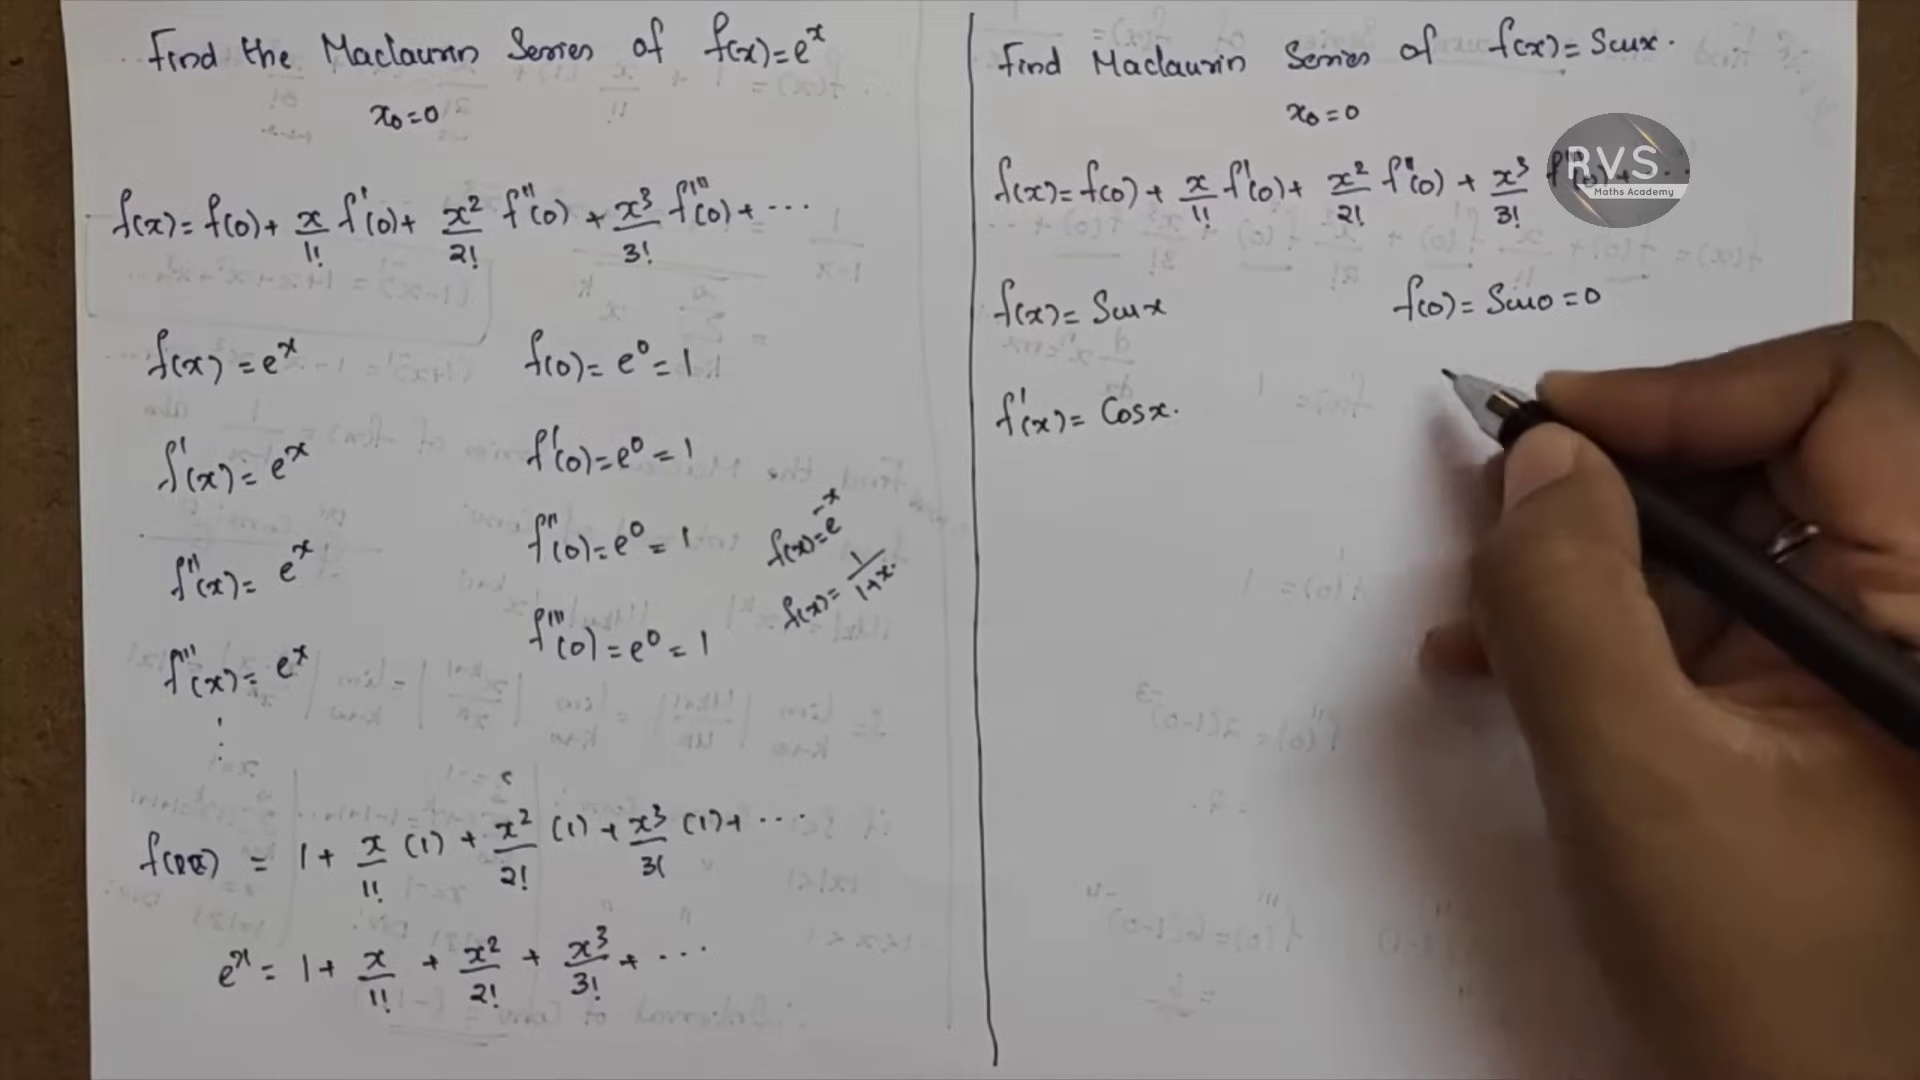 Find the Maclaurin Series of f(x)=e^x
x₀=0
f(x)= f(0)+ x/1! f'(0)+ x²/2! f''(0) + x³/3! f'''(0)+ ...
f(x) = e^x
f(0)= e⁰ = 1
f'(x)= e^x
f'(0)=e⁰ = 1
f''(x)= e^x
f''(0)=e⁰ = 1
f'''(x)= e^x
f'''(0)=e⁰ = 1
f(x)=e^-x
f(x)= 1/1+x.
= 1+ x/1! (1) + x²/2! (1) + x³/3! (1)+ ...
e^x = 1+ x/1! + x²/2! + x³/3! + ...
Find Maclaurin Series of f(x)= Sinx.
x₀=0
f(x)= f(0) + x/1! f'(0)+ x²/2! f''(0) + x³/3! f'''(0)+ ...
RVS
Maths Academy
f(x)= Sinx
f(0)= Sin0 =0
f'(x)= Cosx.